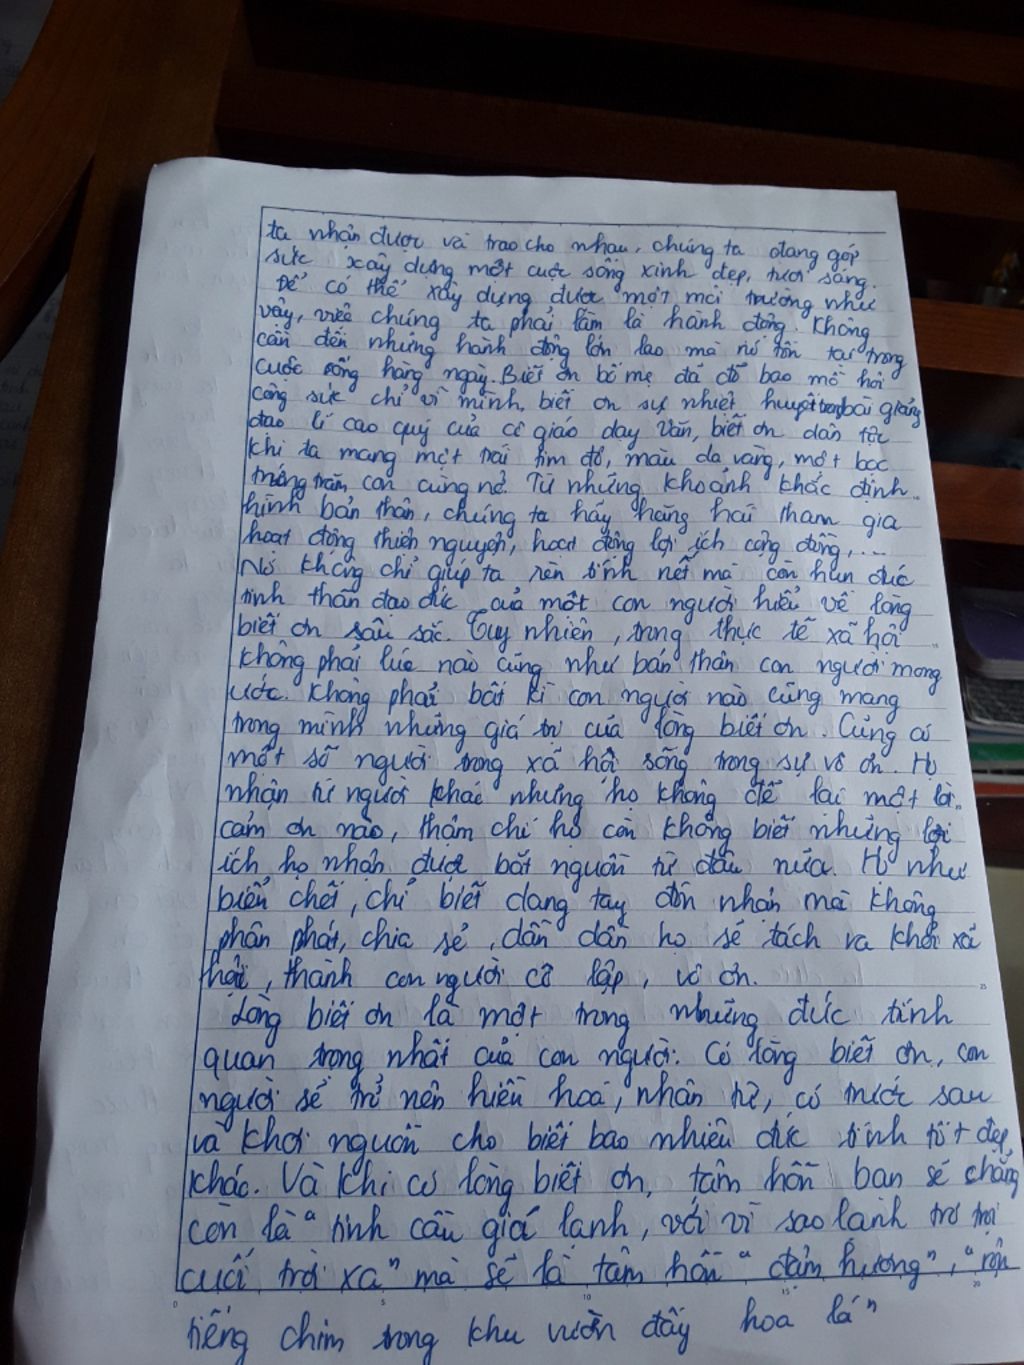 ta nhận được và trao cho nhau, chúng ta đang góp
sức xây dựng một cuộc sống xinh đẹp, tươi sáng.
Để có thể xây dựng được một môi trường như
vậy, việc chúng ta phải làm là hành động. Không
cần đến những hành động lớn lao mà nó tồn tại trong
cuộc sống hàng ngày. Biết ơn bố mẹ đã đổ bao mồ hôi
công sức chỉ vì mình, biết ơn sự nhiệt huyết trong bài giảng
đạo lí cao quý của cô giáo dạy Văn, biết ơn dân tộc
khi ta mang một trái tim đỏ, màu da vàng, một bọc
trứng trăm con cùng nở. Từ những khoảnh khắc định
hình bản thân, chúng ta hãy hăng hái tham gia
hoạt động thiện nguyện, hoạt động lợi ích cộng đồng,...
Nó không chỉ giúp ta rèn tính nết mà còn hun đúc
tinh thần đạo đức của một con người hiểu về lòng
biết ơn sâu sắc. Tuy nhiên, trong thực tế xã hội
không phải lúc nào cũng như bản thân con người mong
ước. Không phải bất kì con người nào cũng mang
trong mình những giá trị của lòng biết ơn. Cũng có
một số người trong xã hội sống trong sự vô ơn. Họ
nhận từ người khác nhưng họ không để lại một lời
cảm ơn nào, thậm chí họ còn không biết những lợi
ích họ nhận được bắt nguồn từ đâu nữa. Họ như
biển chết, chỉ biết dang tay đón nhận mà không
phân phát, chia sẻ, dần dần họ sẽ tách ra khỏi xã
hội, thành con người cô lập, vô ơn.
Lòng biết ơn là một trong những đức tính
quan trọng nhất của con người. Có lòng biết ơn, con
người sẽ trở nên hiền hoà, nhân từ, có trước sau
và khơi nguồn cho biết bao nhiêu đức tính tốt đẹp
khác. Và khi có lòng biết ơn, tâm hồn bạn sẽ chẳng
còn là "tinh cầu giá lạnh, với vì sao lạnh trơ trọi
cuối trời xa" mà sẽ là tâm hồn "đậm hương", "rộn
tiếng chim trong khu vườn đầy hoa lá"